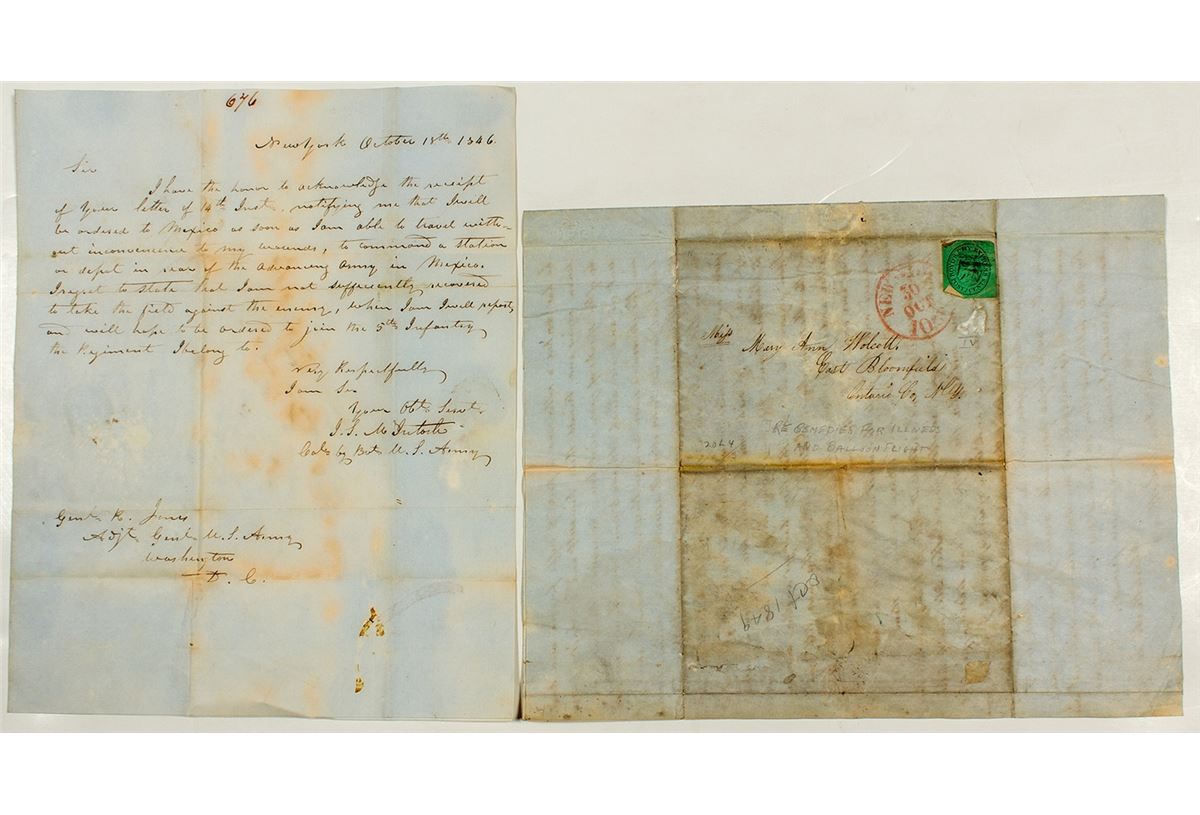 676
New York October 18th 1846.
Sir
I have the honor to acknowledge the receipt
of your letter of 14th Inst. notifying me that I will
be ordered to Mexico as soon as I am able to travel with-
out inconvenience to my wounds, to command a station
or depot in rear of the advancing Army in Mexico.
I regret to state that I am not sufficiently recovered
to take the field against the enemy, when I am I will report,
and will hope to be ordered to join the 5th Infantry
the Regiment I belong to.
Very Respectfully
I am Sir
Your Obt. Servt.
J. S. McIntosh
Col. by Bt. U. S. Army
Genl. R. Jones
Adjt. Genl. U. S. Army
Washington
D. C.
NEW
30
OCT
10
Miss
Mary Ann Wolcott
East Bloomfield
Ontario Co, N.Y.
RE REMEDIES FOR ILLNESS
AND BALLOON FLIGHT
20L4
Oct 1849